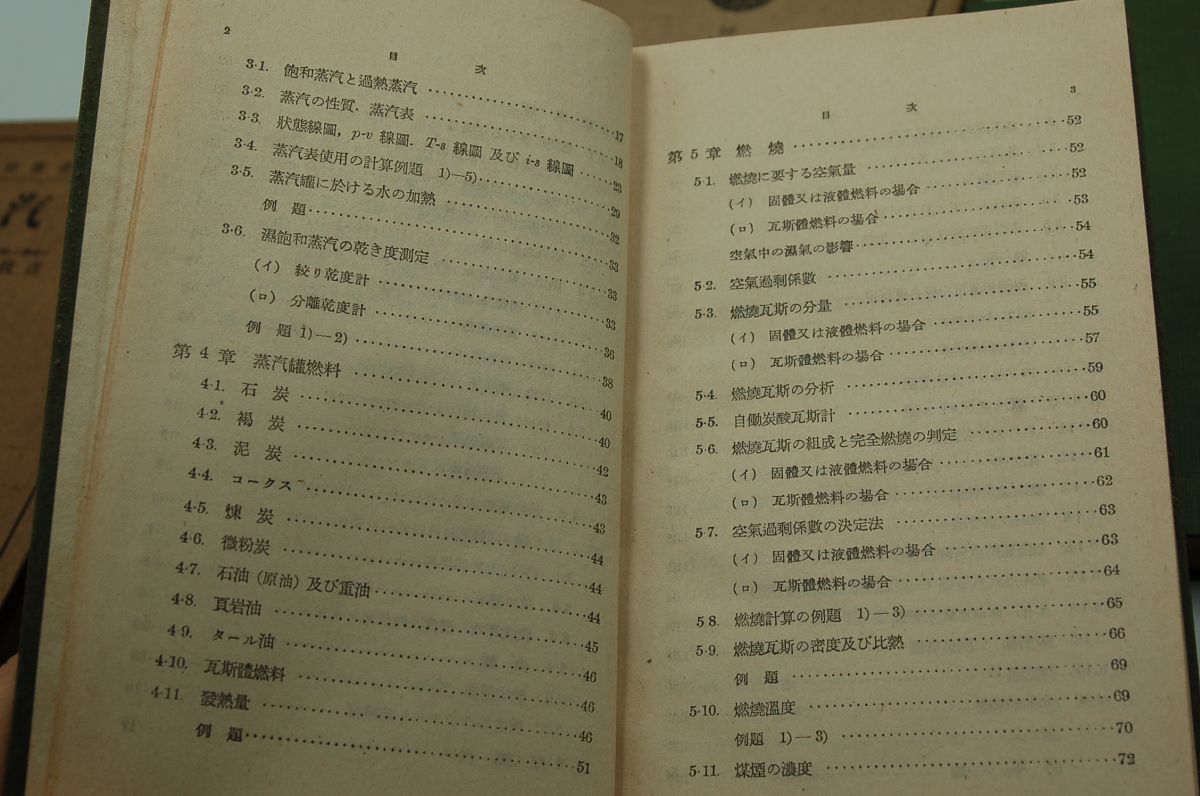 2
目 次
3·1. 飽和蒸汽と過熱蒸汽 ……17
3·2. 蒸汽の性質．蒸汽表 ……18
3·3. 狀態線圖，p-v 線圖．T-s 線圖 及び i-s 線圖 ……23
3·4. 蒸汽表使用の計算例題 1)—5) ……29
3·5. 蒸汽罐に於ける水の加熱 ……32
例 題 ……33
3·6. 濕飽和蒸汽の乾き度測定 ……33
(イ) 絞り乾度計 ……33
(ロ) 分離乾度計 ……36
例 題 1)—2) ……38
第 4 章 蒸汽罐燃料 ……40
4·1. 石 炭 ……40
4·2. 褐 炭 ……42
4·3. 泥 炭 ……43
4·4. コークス ……43
4·5. 煉 炭 ……44
4·6. 微粉炭 ……44
4·7. 石油（原油）及び重油 ……44
4·8. 頁岩油 ……45
4·9. タール油 ……46
4·10. 瓦斯體燃料 ……46
4·11. 發熱量 ……46
例 題 ……51
目 次
3
第 5 章 燃 燒 ……52
5·1. 燃燒に要する空氣量 ……52
(イ) 固體又は液體燃料の場合 ……52
(ロ) 瓦斯體燃料の場合 ……53
空氣中の濕氣の影響 ……54
5·2. 空氣過剩係數 ……54
5·3. 燃燒瓦斯の分量 ……55
(イ) 固體又は液體燃料の場合 ……55
(ロ) 瓦斯體燃料の場合 ……57
5·4. 燃燒瓦斯の分析 ……59
5·5. 自働炭酸瓦斯計 ……60
5·6. 燃燒瓦斯の組成と完全燃燒の判定 ……60
(イ) 固體又は液體燃料の場合 ……61
(ロ) 瓦斯體燃料の場合 ……62
5·7. 空氣過剩係數の決定法 ……63
(イ) 固體又は液體燃料の場合 ……63
(ロ) 瓦斯體燃料の場合 ……64
5 8. 燃燒計算の例題 1)—3) ……65
5·9. 燃燒瓦斯の密度及び比熱 ……66
例 題 ……69
5·10. 燃燒溫度 ……69
例題 1)—3) ……70
5·11. 煤煙の濃度 ……72
汽